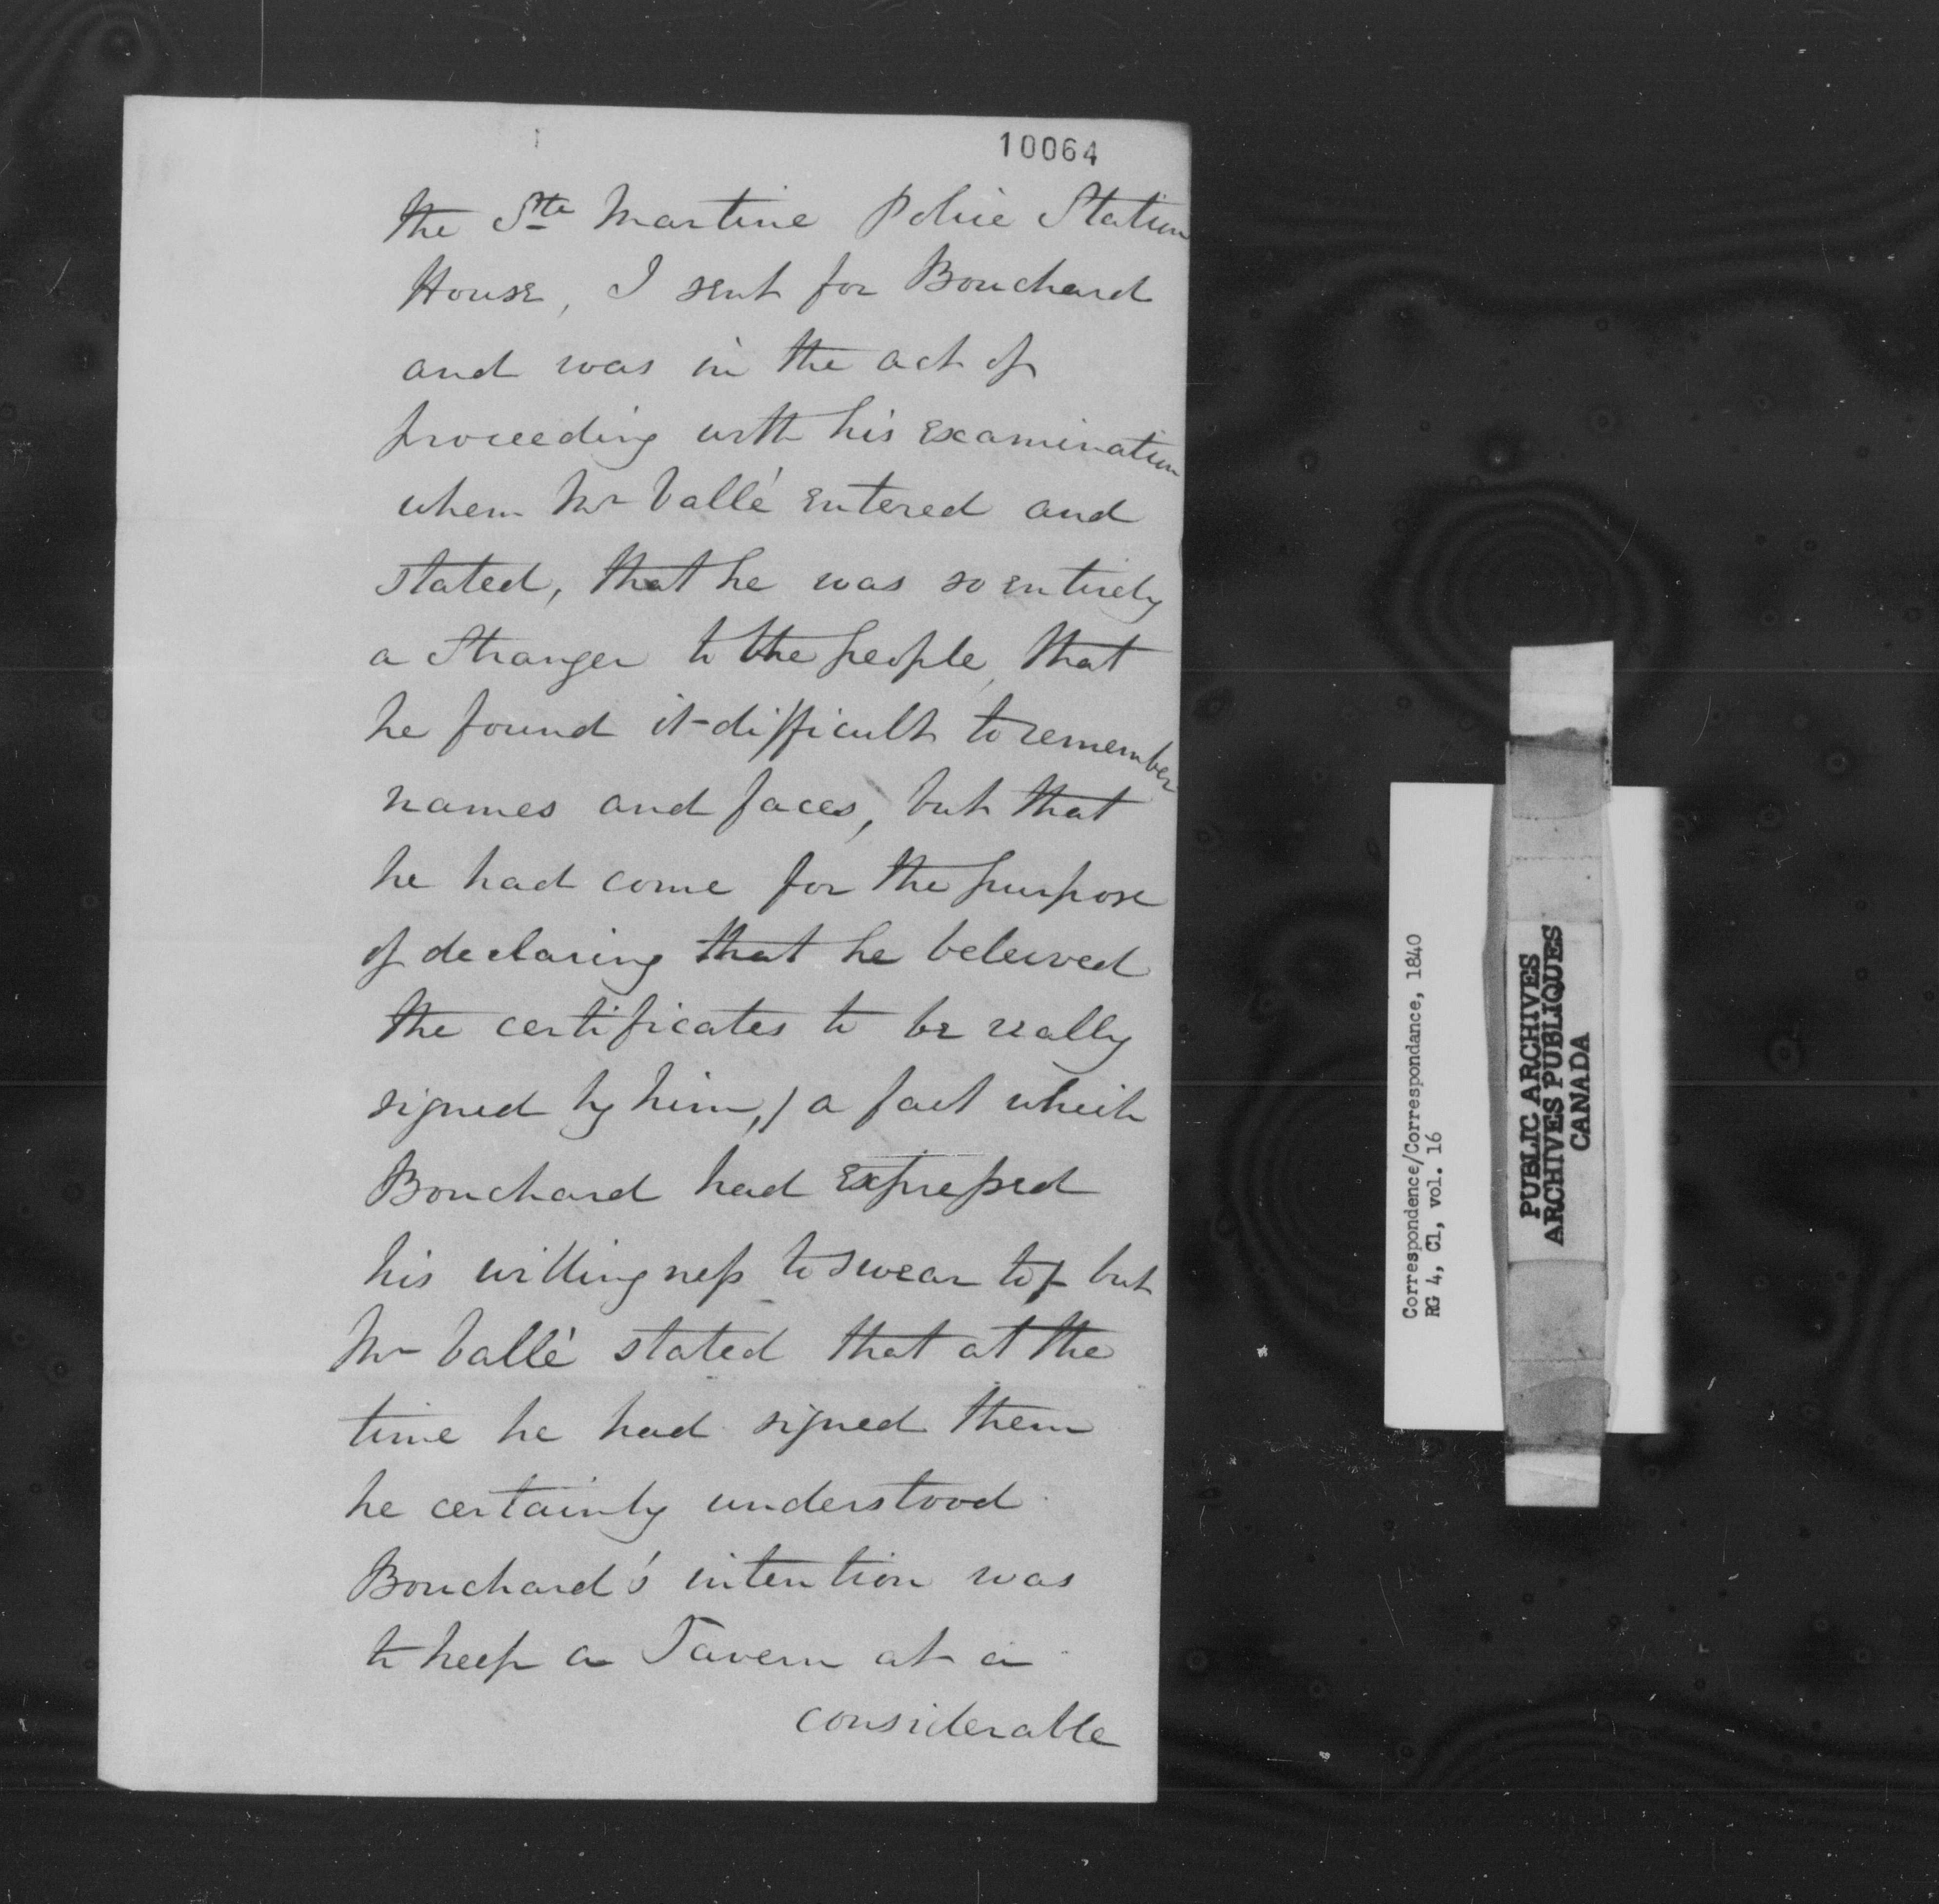 10064
the Ste Martine Police Station
House, I sent for Bouchard
and was in the act of
proceeding with his examination
when Mr Vallé entered and
stated, that he was so entirely
a Stranger to the people, that
he found it difficult to remember
names and faces, but that
he had come for the purpose
of declaring that he beleived
the certificates to be really
signed by him, / a fact which
Bouchard had expressed
his willingness to swear to / but
Mr Vallé stated that at the
time he had signed them
he certainly understood
Bouchard's intention was
to keep a Tavern at a
considerable
Correspondence/Correspondance, 1840
RG 4, C1, vol. 16
PUBLIC ARCHIVES
ARCHIVES PUBLIQUES
CANADA